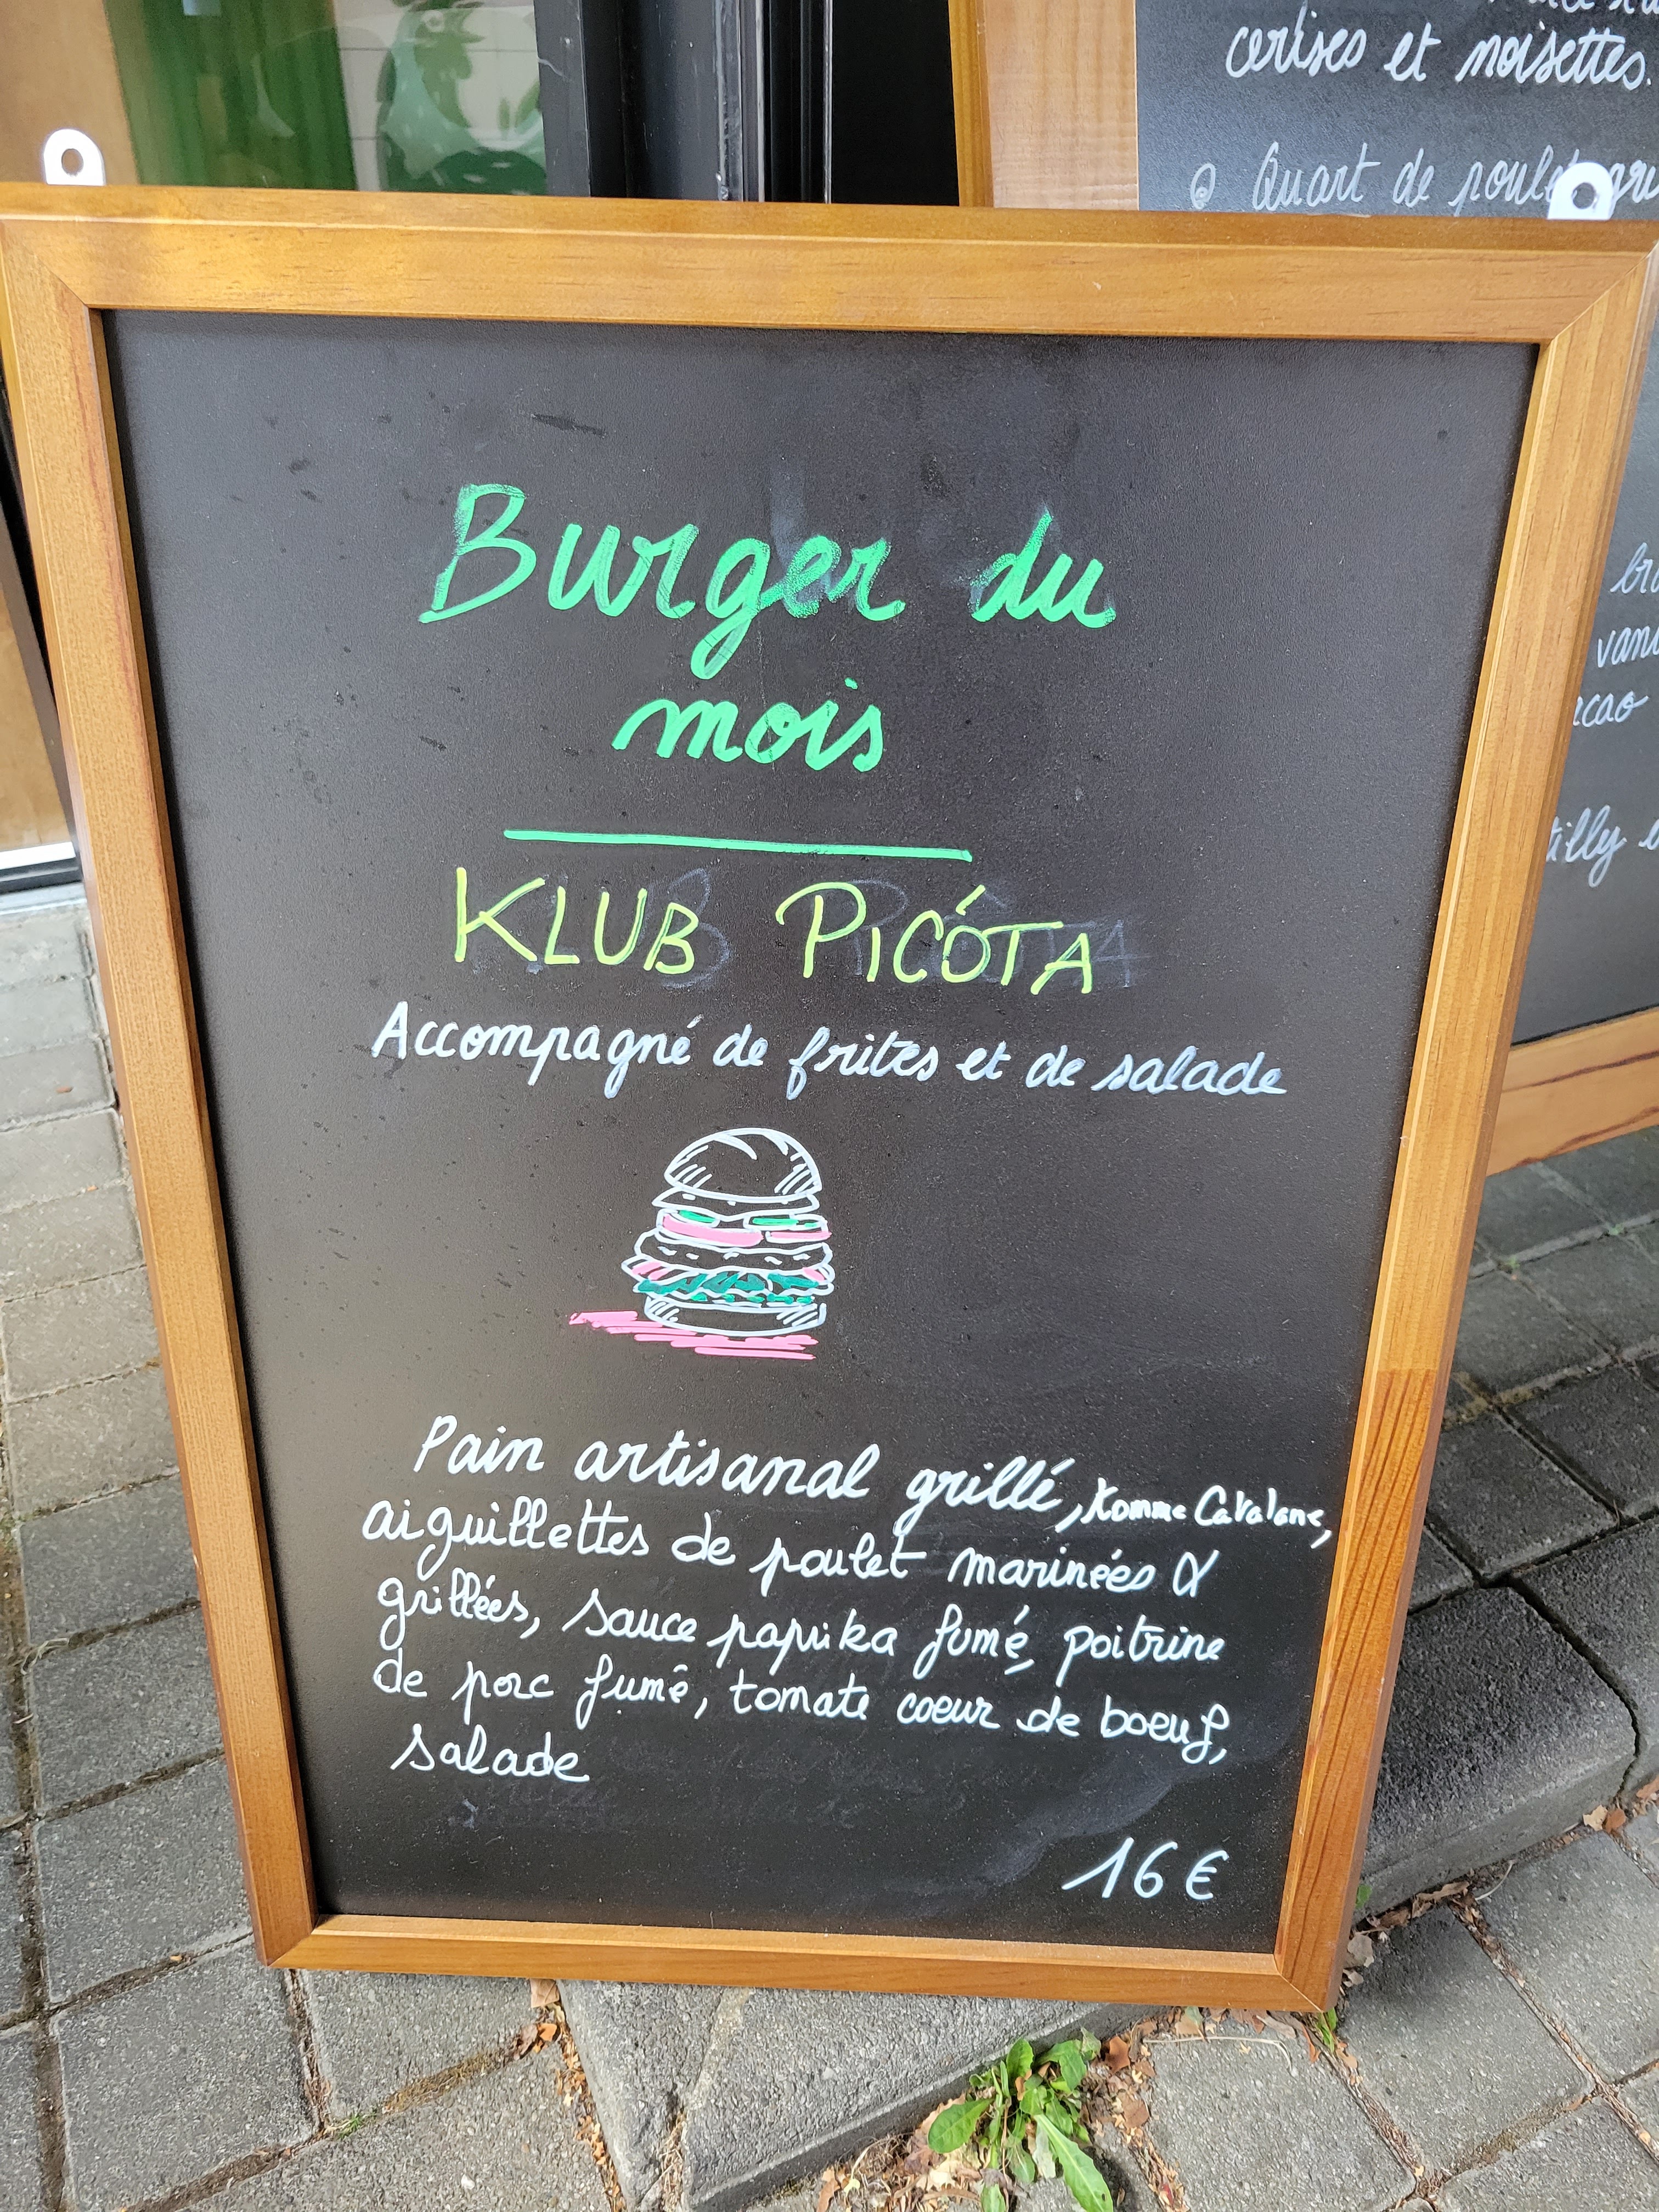 cerises et noisettes.
Quart de poulet
cao
tilly
Burger du
mois
KLUB PICÓTA
Accompagné de frites et de salade
Pain artisanal grillé, tomme Catalane,
aiguillettes de poulet marinées &
grillées, sauce paprika fumé, poitrine
de porc fumé, tomate coeur de boeuf,
salade
16€